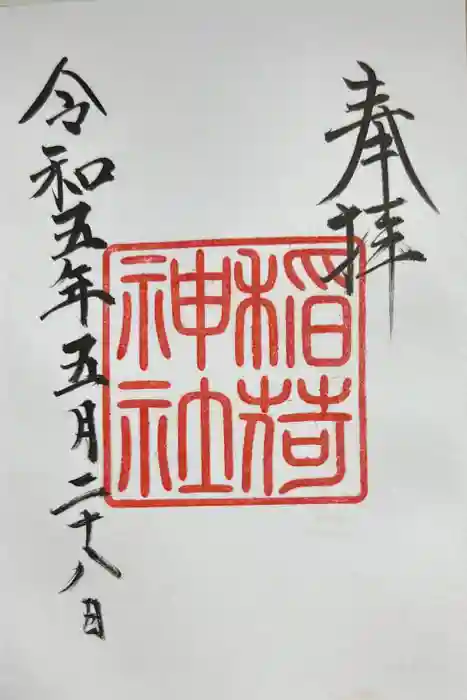 奉拝
稲荷
神社
令和五年五月二十八日